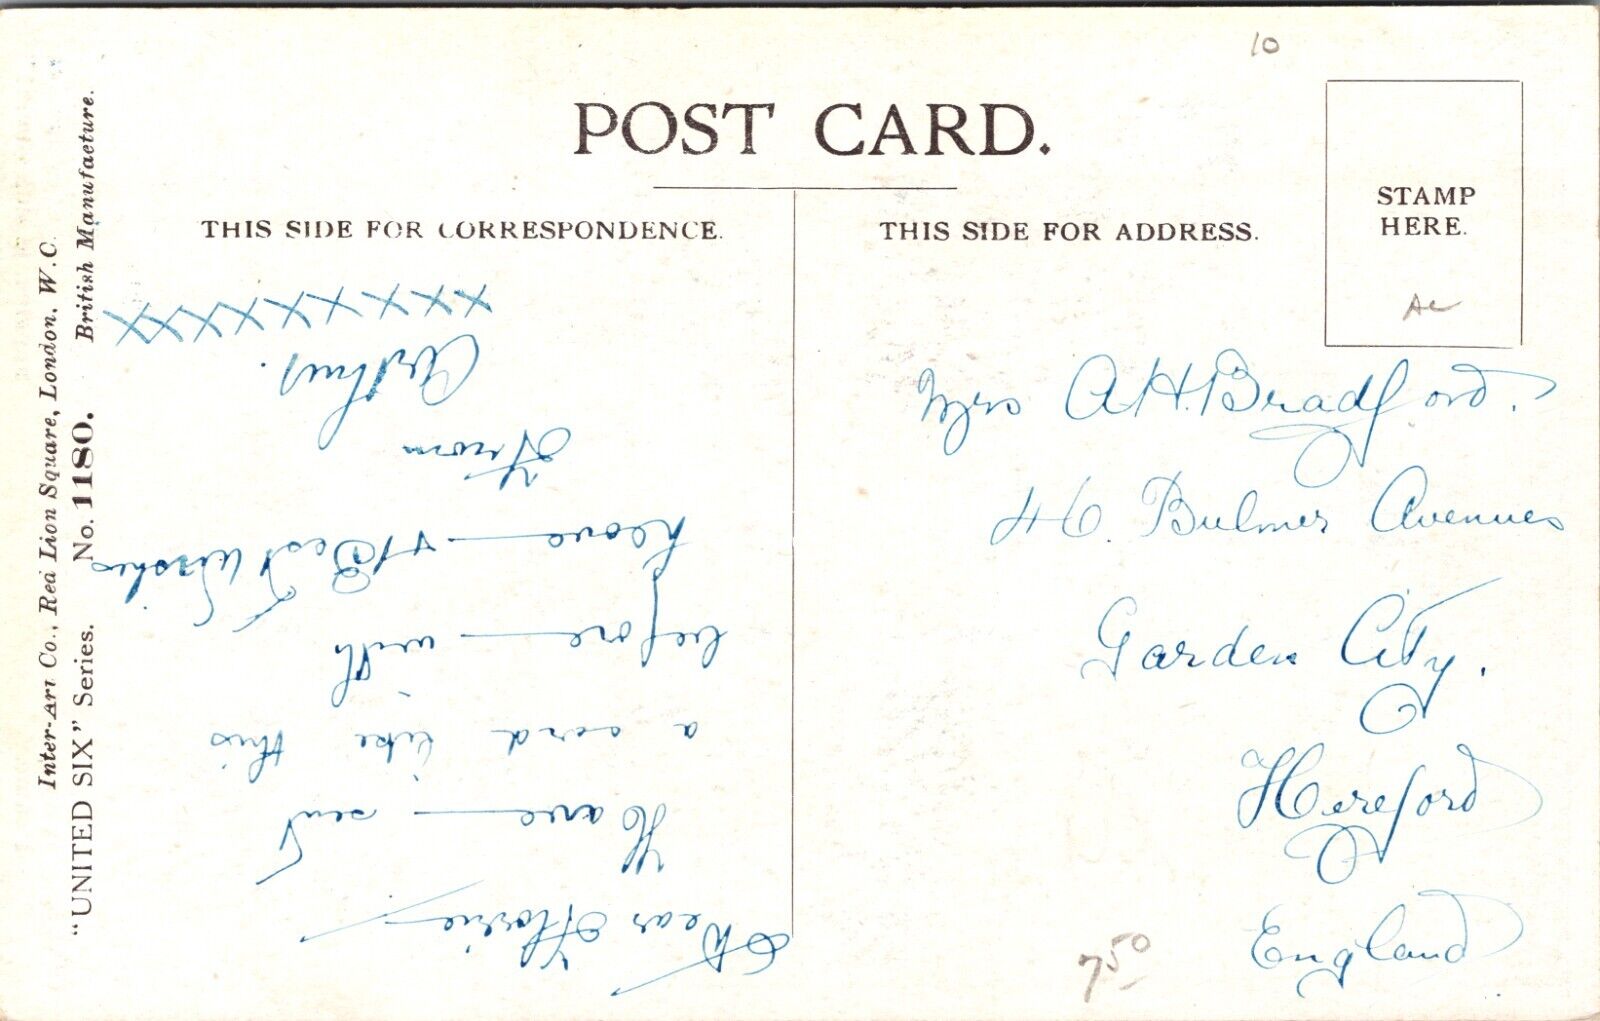 10
POST CARD.
THIS SIDE FOR CORRESPONDENCE.
THIS SIDE FOR ADDRESS.
STAMP
HERE.
Inter-Art Co., Red Lion Square, London, W.C.
"UNITED SIX" Series. No. 1180. British Manufacture.
Dear Florrie
Have sent
a card like this
before with
Love + Best Wishes
From
Arthur.
XXXXXXXXXX
Mrs A H. Bradford.
46. Bulmer Avenues
Garden City.
Hereford
England
750